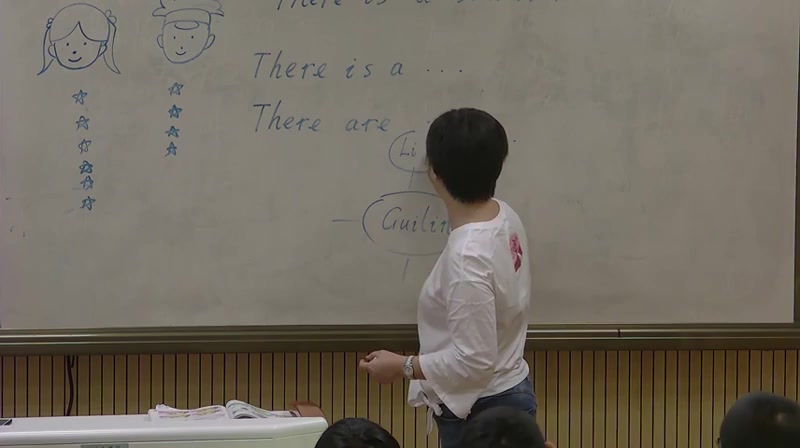 There is a
There is a ...
There are
Li
Guilin